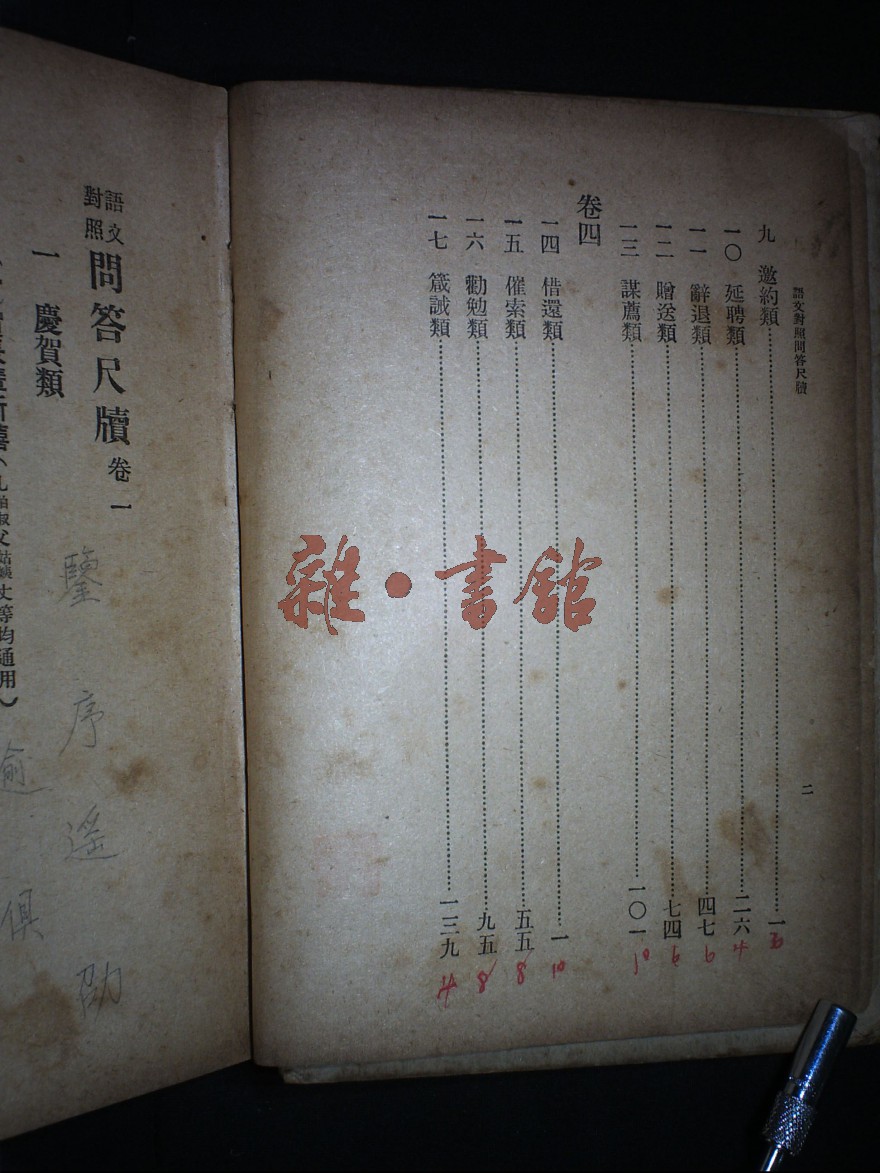 語文對照問答尺牘
二
九 邀約類 一
一〇 延聘類 二六
一一 辭退類 四七
一二 贈送類 七四
一三 謀薦類 一〇一
卷四
一四 借還類 一
一五 催索類 五五
一六 勸勉類 九五
一七 箴誡類 一三九
4
6
6
10
10
8
8
雜·書館
語文對照 問答尺牘 卷一
一 慶賀類
父姑丈等均通用）
鑒 序 遥 劭
逾 俱